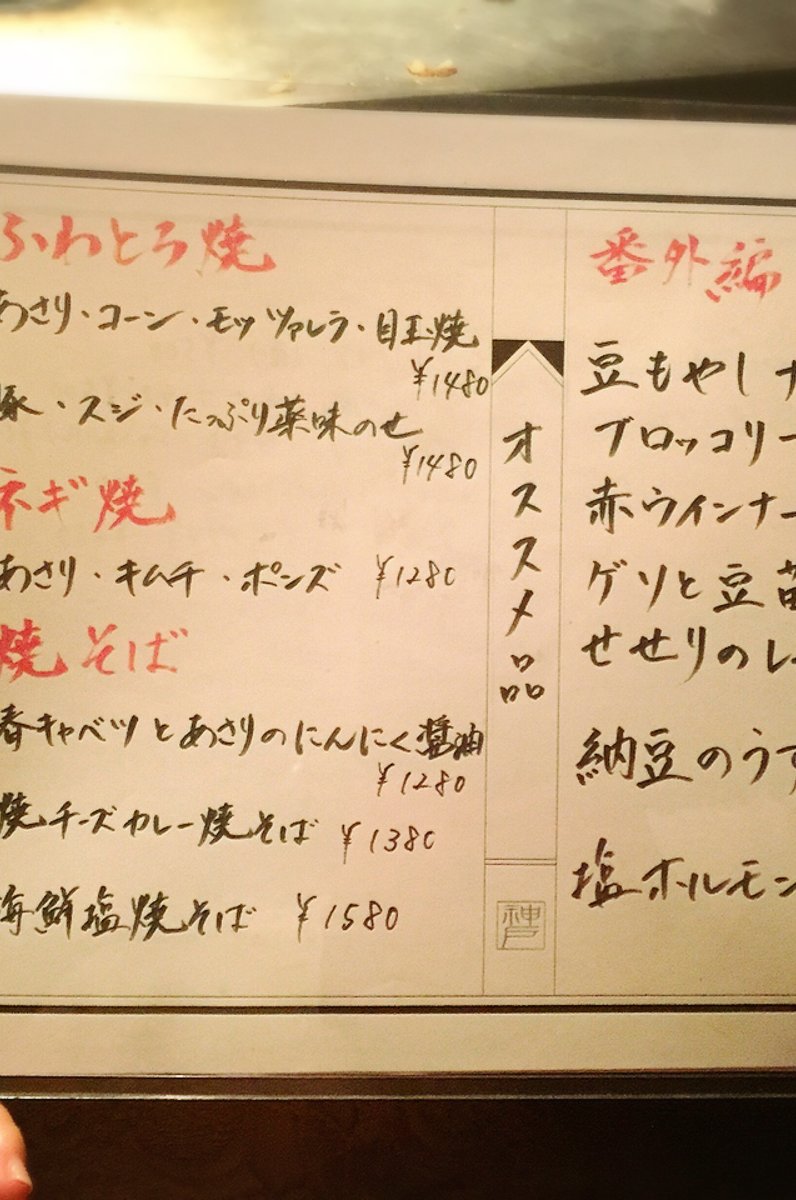 ふわとろ焼
あさり・コーン・モッツァレラ・目玉焼
¥1480
豚・スジ・たっぷり薬味のせ
¥1480
ネギ焼
あさり・キムチ・ポンズ ¥1280
焼そば
春キャベツとあさりのにんにく醤油
¥1280
焼チーズカレー焼そば ¥1380
海鮮塩焼そば ¥1580
オススメ品
神戸
番外編
豆もやしナ
ブロッコリー
赤ウインナー
ゲソと豆苗
せせりのレ
納豆のうす
塩ホルモン